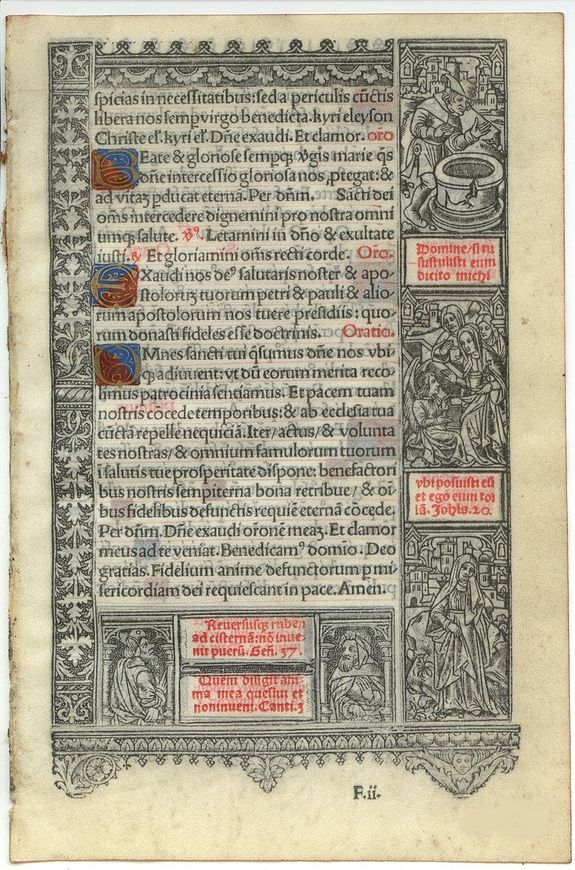 spicias in necessitatibus: sed a periculis cūctis
libera nos semp virgo benedicta. kyri eleyson
Christe el'. kyri el'. Dñe exaudi. Et clamor. oro
Eate & gloriose sempq; v̄gis marie q̄s
dñe intercessio gloriosa nos ,ptegat: &
ad vitaʒ pducat eterna. Per dñm. Sancti dei
oms intercedere dignemini pro nostra omni
umq; salute. v̄9. Letamini in dño & exultate
iusti. Et gloriamini oms recti corde. Oro.
Xaudi nos de9 salutaris noster & apo-
stoloruʒ tuorum petri & pauli & alio-
rum apostolorum nos tuere presidiis: quo-
rum donasti fideles esse doctrinis. Oratio.
Mnes sancti tui q̄sumus dñe nos vbi-
q; adiuuent: vt dū eorum merita reco-
limus patrocinia sentiamus. Et pacem tuam
nostris cōcede temporibus: & ab ecclesia tua
cūctā repelle nequiciā. Iter/ actus/ & volunta
tes nostras/ & omnium famulorum tuorum
ī salutis tue prosperitate dispone: benefactori
bus nostris sempiterna bona retribue/ & oī-
bus fidelibus defunctis requiē eternā cōcede.
Per dñm. Dñe exaudi orōnē meaʒ. Et clamor
meus ad te veniat. Benedicam9 domīo. Deo
gratias. Fidelium anime defunctorum p mi-
sericordiam dei requiescant in pace. Amen.
Domine/ si tu
sustulisti eum
dicito michi
vbi posuisti eū
et ego eum tol
lā. Johīs. 20.
Reuersusq; ruben
ad cisternā: nō inue-
nit puerū. Geñ. 37.
Quem diligit ani-
ma mea quesiui et
non inueni. Canti. 3
F.ii.